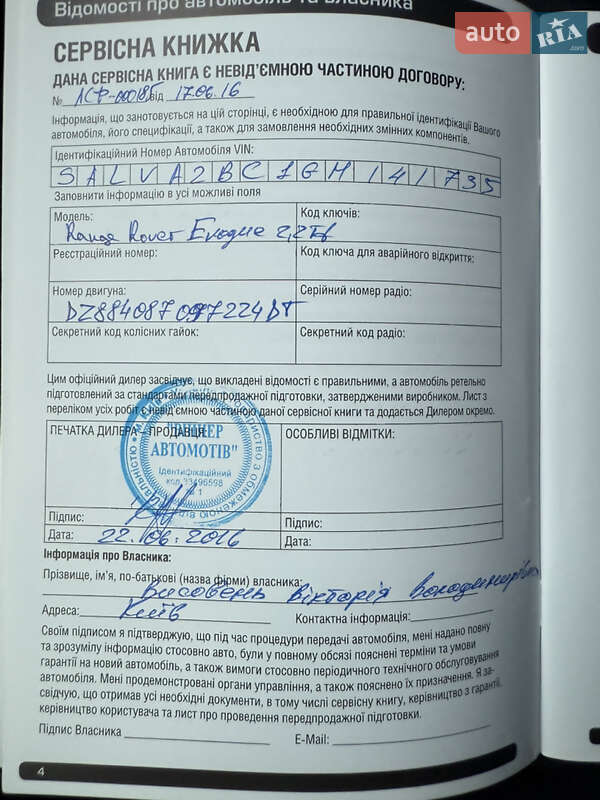 Відомості про автомобіль та власника
auto RIA.com
СЕРВІСНА КНИЖКА
ДАНА СЕРВІСНА КНИГА Є НЕВІД'ЄМНОЮ ЧАСТИНОЮ ДОГОВОРУ:
№ від 17.06.16
Інформація, що занотовується на цій сторінці, є необхідною для правильної ідентифікації Вашого
автомобіля, його специфікації, а також для замовлення необхідних змінних компонентів.
Ідентифікаційний Номер Автомобіля VIN:
SALVA2BC1GH141735
Заповнити інформацію в усі можливі поля
Модель: Код ключів:
Range Rover Evoque 2,2
Реєстраційний номер: Код ключа для аварійного відкриття:
Номер двигуна: Серійний номер радіо:
DZ884087097224DT
Секретний код колісних гайок: Секретний код радіо:
Цим офіційний дилер засвідчує, що викладені відомості є правильними, а автомобіль ретельно
підготовлений за стандартами передпродажної підготовки, затвердженими виробником. Лист з
переліком усіх робіт є невід'ємною частиною даної сервісної книги та додається Дилером окремо.
ПЕЧАТКА ДИЛЕРА – ПРОДАВЦЯ: ОСОБЛИВІ ВІДМІТКИ:
АВТОМОТІВ"
Ідентифікаційний
код 33496598
Підпис: Підпис:
Дата: 22.06.2016 Дата:
Інформація про Власника:
Прізвище, ім'я, по-батькові (назва фірми) власника:
Вікторія
Адреса: Київ Контактна інформація:
Своїм підписом я підтверджую, що під час процедури передачі автомобіля, мені надано повну
та зрозумілу інформацію стосовно авто, були у повному обсязі пояснені терміни та умови
гарантії на новий автомобіль, а також вимоги стосовно періодичного технічного обслуговування
автомобіля. Мені продемонстровані органи управління, а також пояснено їх призначення. Я за-
свідчую, що отримав усі необхідні документи, в тому числі сервісну книгу, керівництво з гарантії,
керівництво користувача та лист про проведення передпродажної підготовки.
Підпис Власника E-Mail:
4